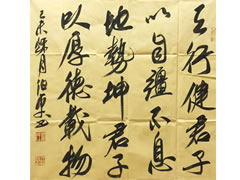 天行健君子
以自彊不息
地勢坤君子
以厚德載物
乙未月